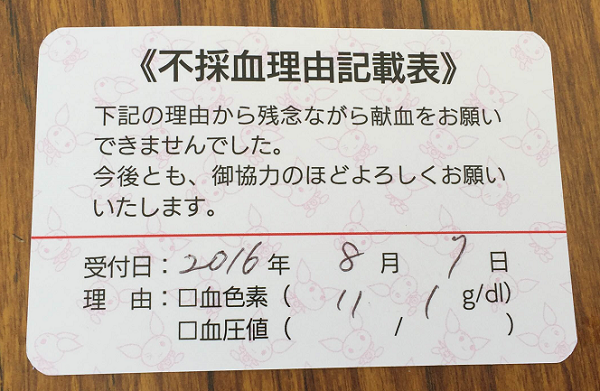 《不採血理由記載表》
下記の理由から残念ながら献血をお願い
できませんでした。
今後とも、御協力のほどよろしくお願い
いたします。
受付日：2016年 8月 7日
理　由：□血色素（ 11 1 g/dl）
□血圧値（ / ）